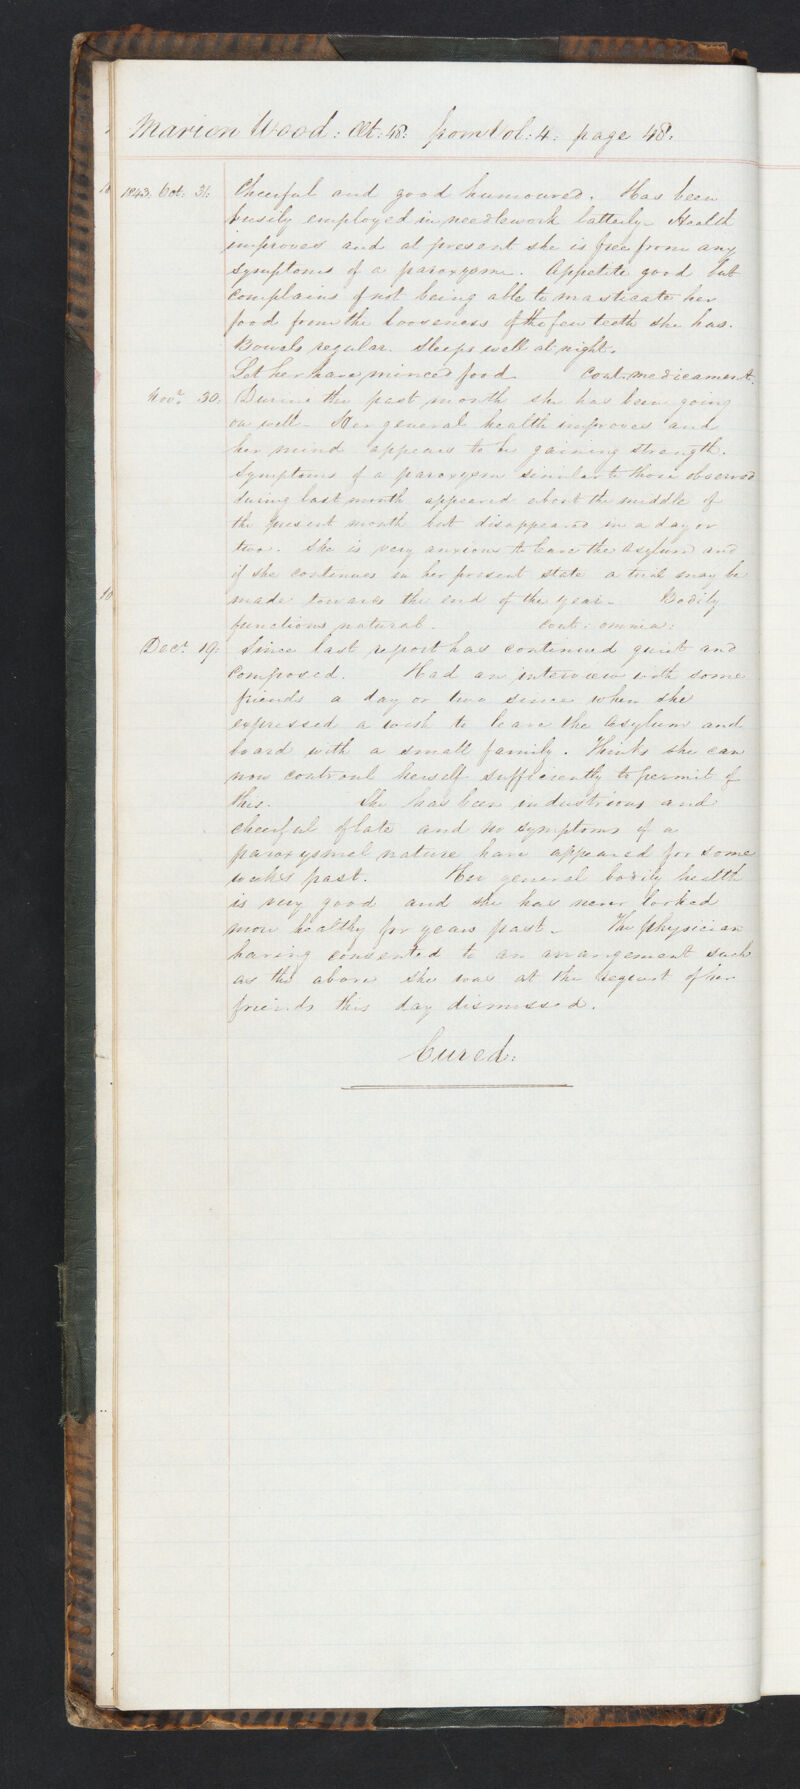 Marion Wood: Æt: 48: from Vol: 4: page 48.
1843. Oct: 31: Cheerful and good humoured. Has been
busily employed in needlework latterly. Health
improves and at present she is free from any
symptoms of a paroxysm. Appetite good but
complains of not being able to masticate her
food from the looseness of the few teeth she has.
Bowels regular. Sleeps well at night.
Let her have minced food Cont: medicament:
Novr. 30: During the past month she has been going
on well - Her general health improves and
her mind appears to be gaining strength.
Symptoms of a paroxysm similar to those observed
during last month appeared about the middle of
the present month but disappeared in a day or
two. She is very anxious to leave the Asylum and
if she continues in her present state a trial may be
made towards the end of the year. Bodily
functions natural. Cont: omnia:
Decr. 19: Since last report has continued quiet and
composed. Had an interview with some
friends a day or two since when she
expressed a wish to leave the Asylum and
board with a small family. Thinks she can
now controul herself sufficiently to permit of
this. She has been industrious and
cheerful of late and no symptoms of a
paroxysmal nature have appeared for some
weeks past. Her general bodily health
is very good and she has never looked
more healthy for years past - The Physician
having consented to an arrangement such
as the above she was at the request of her
friends this day dismissed.
Cured: